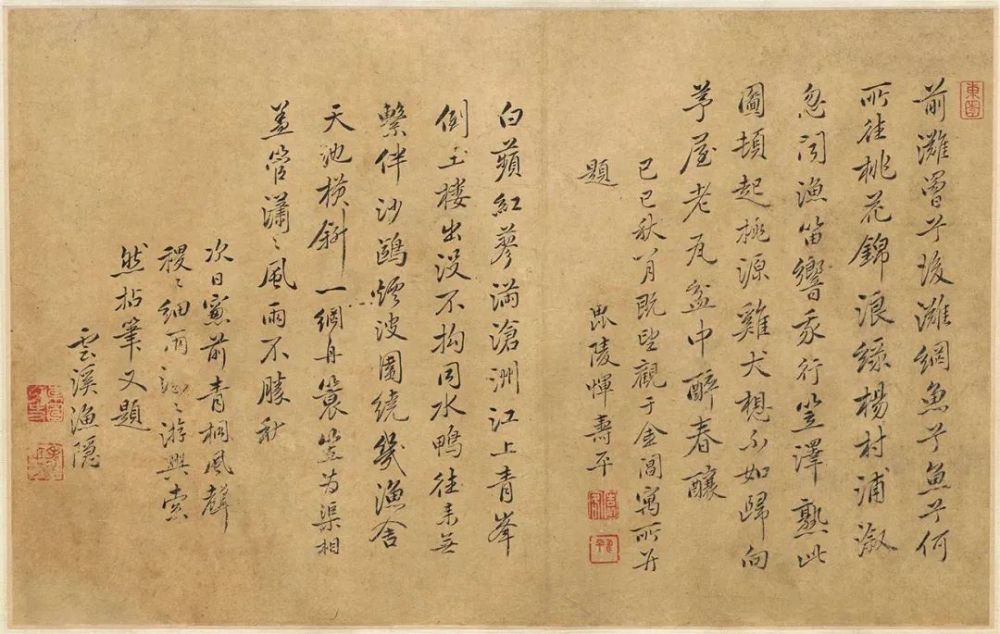 東園
前灘罾兮後灘網魚兮魚兮何
所往桃花錦浪綠楊村浦漵
忽聞漁笛響我行笠澤熟此
圖頓起桃源雞犬想不如歸向
茅屋老瓦盆中醉春釀
己巳秋八月既望觀于金閶寓所并
題 毗陵惲壽平
白蘋紅蓼滿滄洲江上青峯
倒玉樓出沒不拘同水鴨往來無
繫伴沙鷗煙波圍繞幾漁舍
天池橫斜一綱舟蓑笠为渠相
蓋管瀟〻風雨不勝秋
次日窻前青桐風聲
稷〻細雨〻游興索
然拈筆又題
雲溪漁隱